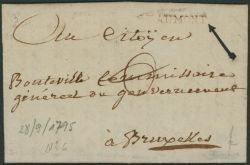 Au Citoÿen
Bouteville Commissaire
général du gouvernement
à Bruxelles
28/9/1795
N.6